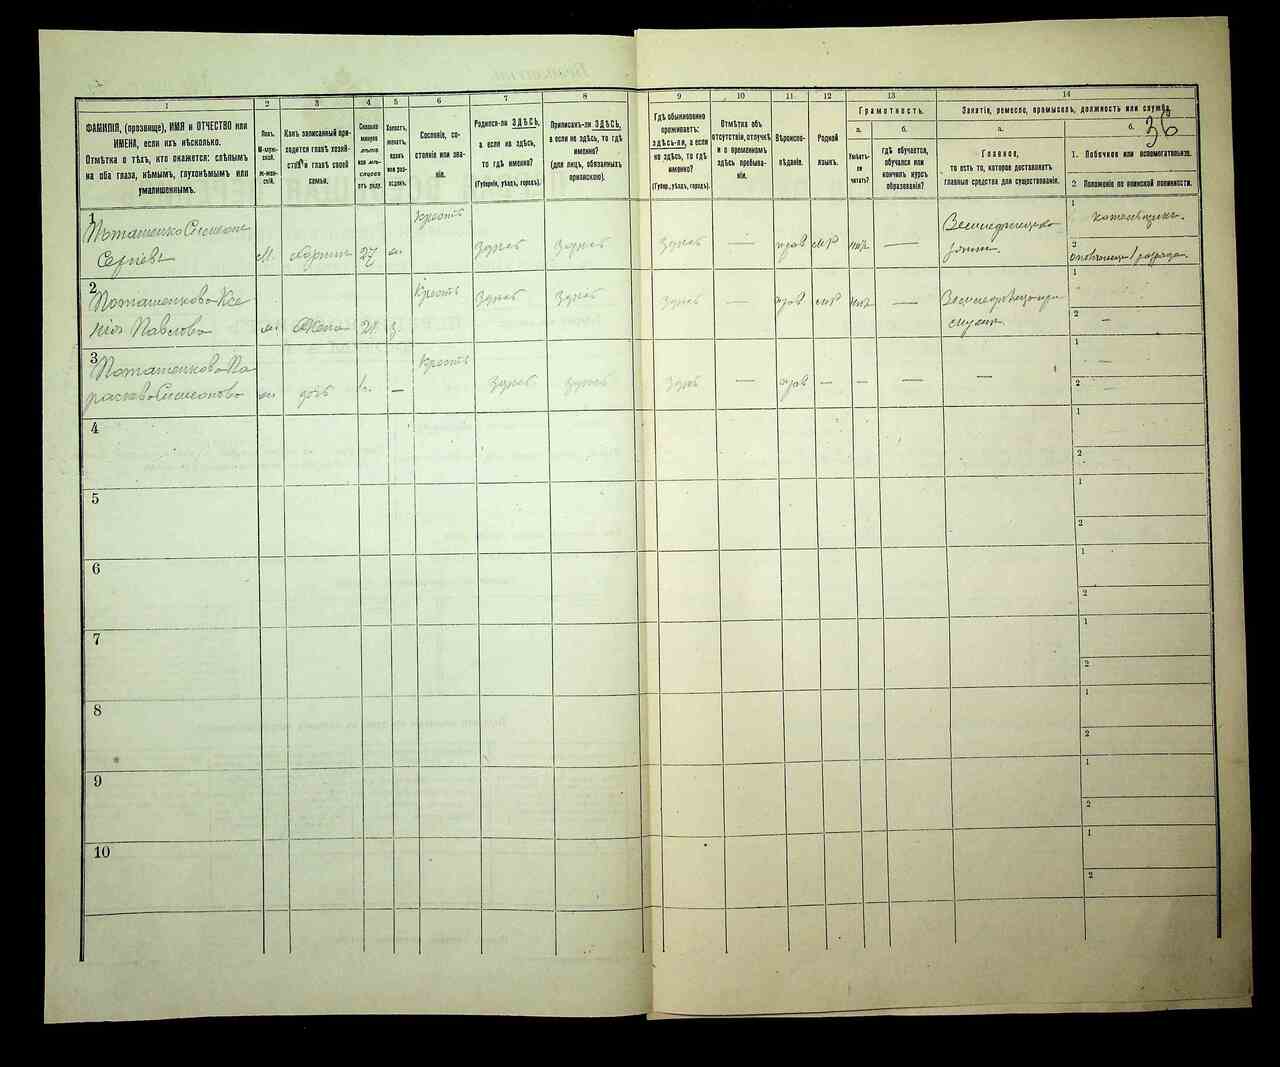 36
1
2
3
4
5
6
7
8
9
10
11
12
13
14
ФАМИЛІЯ, (прозвище), ИМЯ и ОТЧЕСТВО или
ИМЕНА, если ихъ нѣсколько.
Отмѣтка о тѣхъ, кто окажется: слѣпымъ
на оба глаза, нѣмымъ, глухонѣмымъ или
умалишеннымъ.
Полъ.
М-мужской.
Ж-женскій.
Какъ записанный приходится главѣ хозяйства и главѣ своей
семьи.
Сколько
минуло
лѣтъ
или мѣсяцевъ
отъ роду.
Холостъ,
женатъ,
вдовъ
или разведенъ.
Сословіе, состояніе или званіе.
Родился-ли ЗДѢСЬ,
а если не здѣсь,
то гдѣ именно?
(Губернія, уѣздъ, городъ).
Приписанъ-ли ЗДѢСЬ,
а если не здѣсь, то гдѣ
именно?
(для лицъ, обязанныхъ
припискою).
Гдѣ обыкновенно
проживаетъ:
здѣсь-ли, а если
не здѣсь, то гдѣ
именно?
(Губер., уѣздъ, городъ).
Отмѣтка объ
отсутствіи, отлучкѣ
и о временномъ
здѣсь пребываніи.
Вѣроисповѣданіе.
Родной
языкъ.
Грамотность.
а.
Умѣетъ-ли
читать?
б.
гдѣ обучается,
обучался или
кончилъ курсъ
образованія?
Занятіе, ремесло, промыселъ, должность или служба.
а.
Главное,
то есть то, которое доставляетъ
главныя средства для существованія.
б.
1. Побочное или вспомогательное.
2 Положеніе по воинской повинности.
1
Поташенко Симеонъ
Сергіевъ
М.
27
ж.
Крестъ
здѣсь
здѣсь
здѣсь
—
прав
МР
—
1
2
2
Поташенкова Ксенія Павлова
жена
21
з.
Крестъ
здѣсь
здѣсь
здѣсь
—
прав
МР
—
1
2
—
3
Поташенкова Параскева Симеонова
ж.
дочь
1г.
—
Крестъ
здѣсь
здѣсь
здѣсь
—
прав
—
—
—
—
1
—
2
—
4
1
2
5
1
2
6
1
2
7
1
2
8
1
2
9
1
2
10
1
2